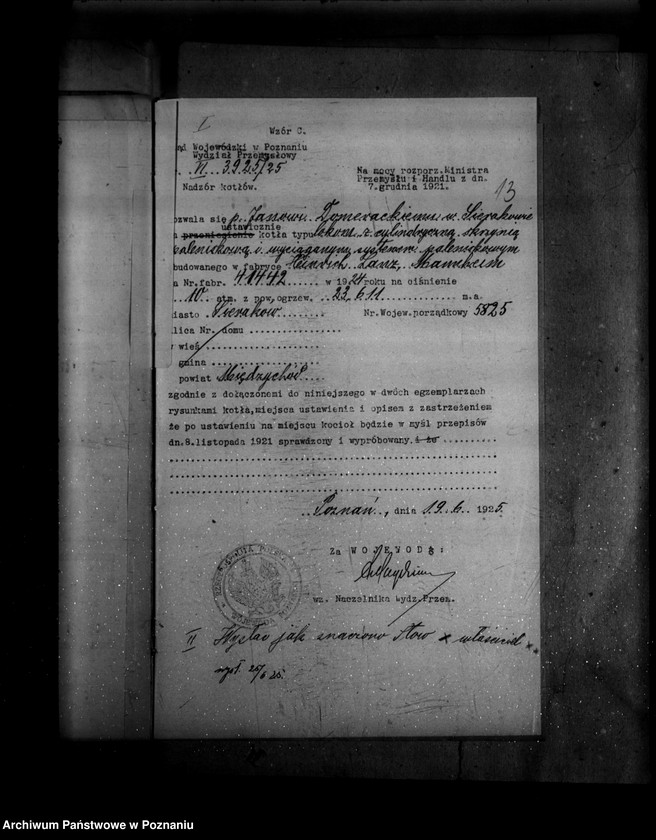 I
Wzór C.
ąd Wojewódzki w Poznaniu
Wydział Przemysłowy
VI 3925/25
Nadzór kotłów.
Na mocy rozporz. Ministra
Przemysłu i Handlu z dn.
7.grudnia 1921.
13
ozwala się p. Janowi w Sierakowie
ustawienie
kotła typu lokom. z cylindryczną skrzynią
paleniskową i wyciąganym systemem paleniskowym
budowanego w fabryce Heinrich Lanz, Mannheim
a Nr.fabr. 41442 ...... w 1924 roku na ciśnienie
..10.. atm. z pow.ogrzew. ..23,611........... m.a
iasto .Sieraków........ Nr.Wojew.porządkowy 5825
lica Nr. domu ...............
wieś ...................
gmina ....................
powiat Międzychód....
zgodnie z dołączonemi do niniejszego w dwóch egzemplarzach
rysunkami kotła,miejsca ustawienia i opisem z zastrzeżeniem
że po ustawieniu na miejscu kocioł będzie w myśl przepisów
dn.8.listopada 1921 sprawdzony i wypróbowany.i że ..........
..Poznań.., dnia 19.6.. 1925.
Za WOJEWODĘ:
wz. Naczelnika Wydz.Przem.
II Wysłać jak znaczono
wysł. 25/6 25.
Archiwum Państwowe w Poznaniu